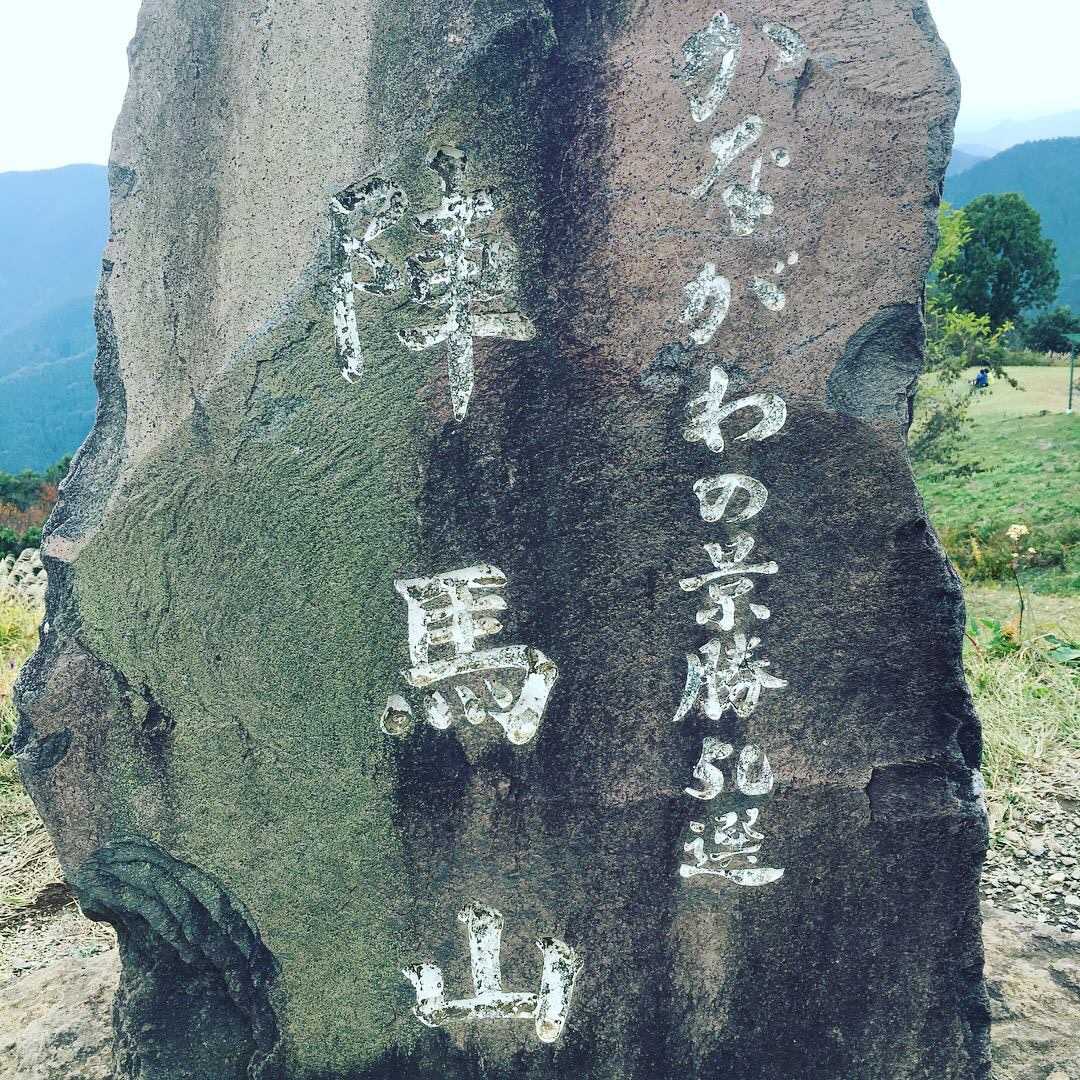 かながわの景勝50選
陣馬山